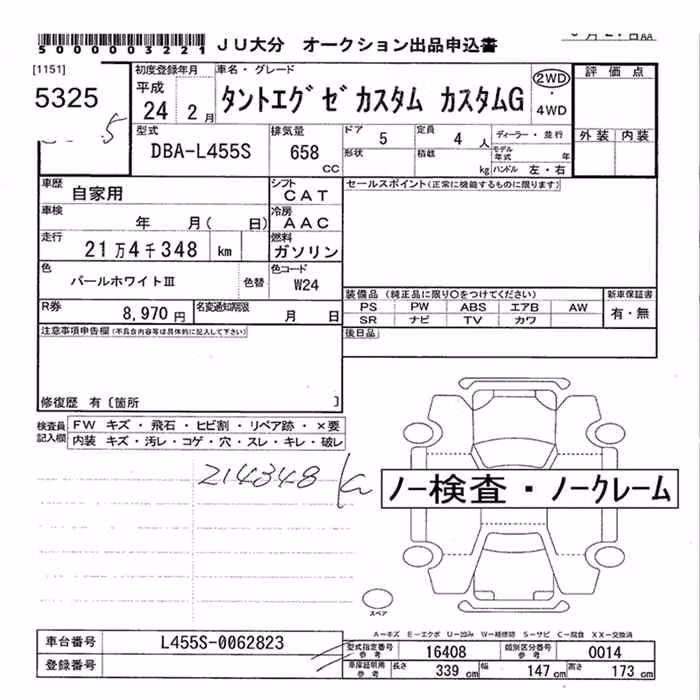 5000003221 JU大分 オークション出品申込書
[1151]
5325
初度登録年月
平成
24 年 2 月
車名・グレード
タントエグゼカスタム カスタムG
2WD
・
4WD
評価点
外装 内装
型式
DBA-L455S
排気量
658 CC
ドア 5
定員 4 人
形状
積載 kg
ディーラー・並行
モデル年式 年
ハンドル 左・右
車歴 自家用
シフト CAT
セールスポイント(正常に機能するものに限ります)
車検 年 月( 日)
冷房 AAC
走行 21万4千348 km
燃料 ガソリン
色 パールホワイトⅢ 色替
色コード W24
R券 8,970円
名変通知期限 月 日
装備品 (純正品に限り○をつけてください)
PS PW ABS エアB AW
SR ナビ TV カワ
新車保証書
有・無
注意事項申告欄(不具合内容等は具体的に記入して下さい)
後日品
修復歴 有〔箇所 〕
検査員記入欄
FW キズ・飛石・ヒビ割・リペア跡・×要
内装 キズ・汚レ・コゲ・穴・スレ・キレ・破レ
214348 km
ノー検査・ノークレーム
スペア
A−キズ E−エクボ U−凹み W−補修跡 S−サビ C−腐食 XX−交換済
車台番号 L455S-0062823
登録番号
型式指定番号 参考 16408
類別区分番号 参考 0014
車庫証明用 参考 長さ 339 cm 幅 147 cm 高さ 173 cm